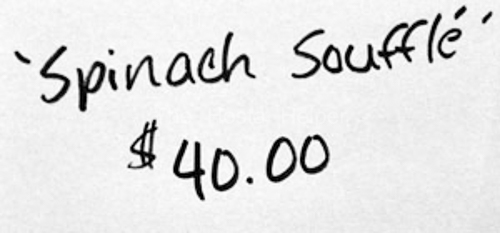 `Spinach Soufflé´
$40.00